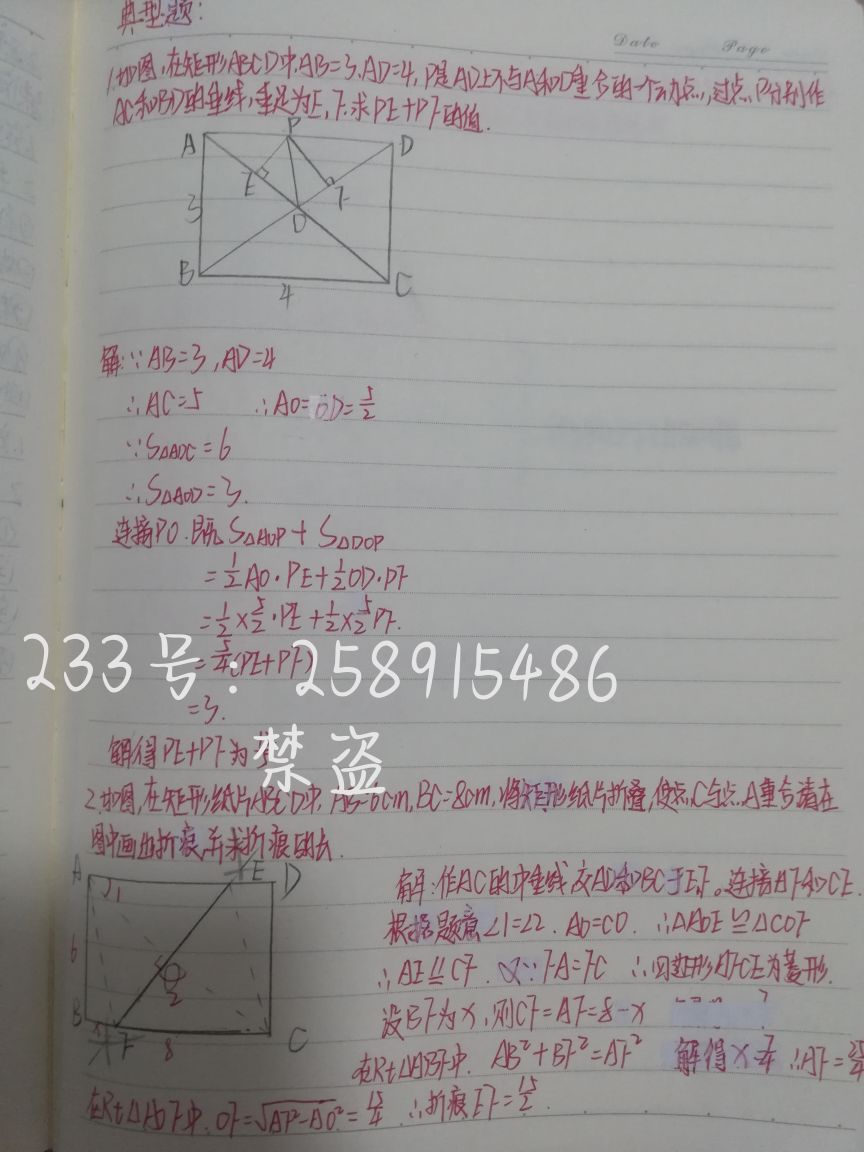 典型题:
Date Page
1.如图,在矩形ABCD中,AB=3,AD=4,P是AD上不与A和D重合的一个动点,过点P分别作
AC和BD的垂线,垂足为E,F.求PE+PF的值.
A P D
E F
3 O
B C
4
解:∵AB=3,AD=4
∴AC=5 ∴AO=OD=5/2
∵S△ADC=6
∴S△AOD=3.
连接PO.即 S△AOP+S△DOP
=1/2AO·PE+1/2OD·PF
=1/2×5/2·PE+1/2×5/2PF.
233号:258915486
=5/4(PE+PF)
=3.
解得PE+PF为
禁盗
2.如图,在矩形纸片ABCD中.AB=6cm,BC=8cm,将矩形纸片折叠,使点C与点A重合请在
图中画出折痕,并求折痕的长.
A 1 E D
6 O 2
B x F 8 C
解:作AC的中垂线交AD和BC于E,F。连接AF和CE.
根据题意∠1=∠2.AO=CO.∴△AOE≌△COF
∴AE⫫CF.又∵FA=FC ∴四边形AFCE为菱形.
设BF为x,则CF=AF=8-x
在Rt△ABF中.AB²+BF²=AF² 解得x=7/4∴AF=25/4
在Rt△AOF中.OF=√AF²-AO²=15/4 ∴折痕EF=15/2.